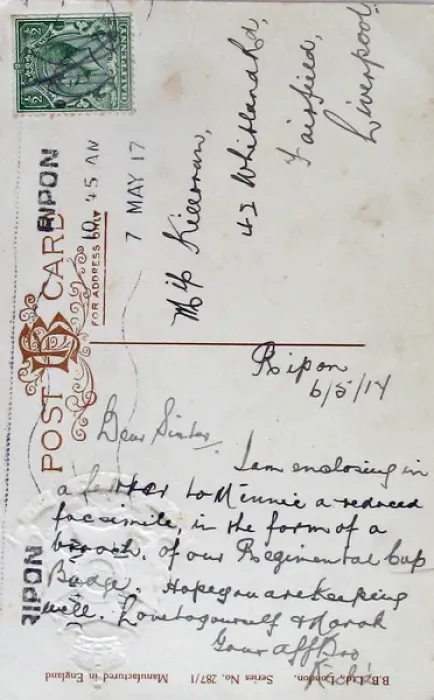 HALFPENNY
RIPON
10 45 AM
7 MAY 17
POST CARD
FOR ADDRESS ONLY
Miss Killorran,
42 Whitland Rd,
Fairfield,
Liverpool
Ripon
6/5/17
Dear Sister,
I am enclosing in
a letter to Minnie a reduced
facsimile, in the form of a
brooch, of our Regimental Cap
Badge. Hope you are keeping
well. Love to yourself &
Your aff Bro
RIPON
B.B. Ltd., London. Series No. 287/1 Manufactured in England